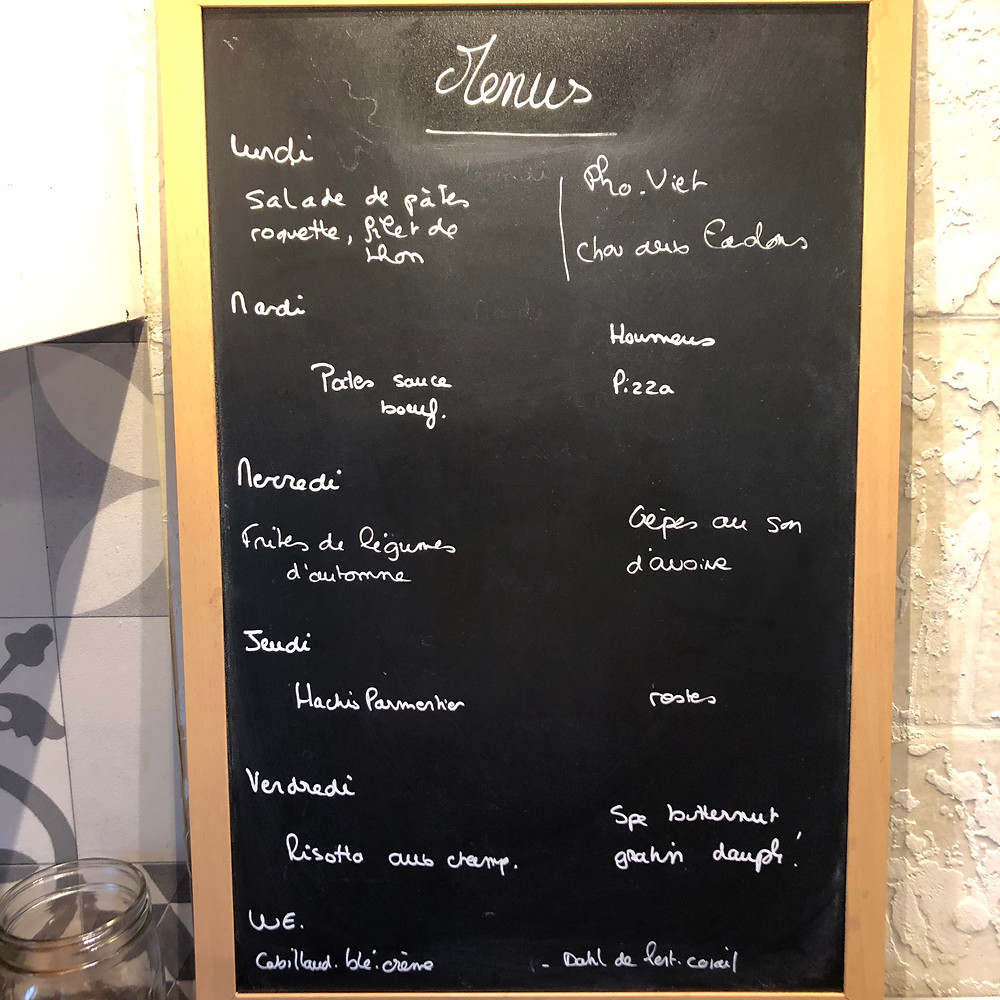 Menus
Lundi
Salade de pâtes
roquette, filet de
thon
Pho. Viet
Chou aux Lardons
Mardi
Pates sauce
boeuf.
Houmous
Pizza
Mercredi
Frites de légumes
d'automne
Crêpes au son
d'avoine
Jeudi
Hachis Parmentier
restes
Vendredi
Risotto aux champ.
Spe butternut
gratin dauph'.
WE.
Cabillaud. blé. crème
- Dahl de lent. corail